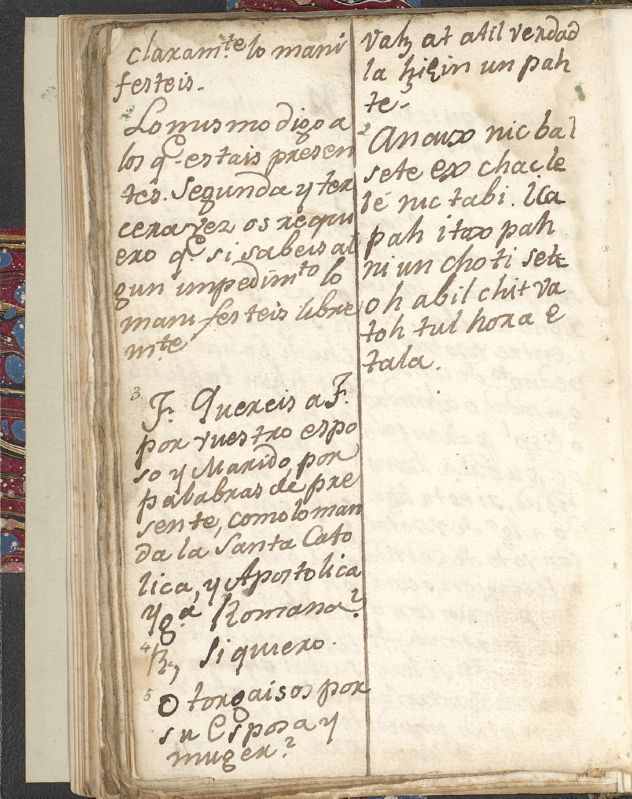 claram.te lo mani
festeis.
2 Lo mismo digo a
los q.e estais presen
tes. Segunda y ter
cera vez os requi
ero q.e si sabeis al
gun impedim.to lo
manifesteis libre
mte
3 F. Quereis a F.
por vuestro espo
so y Marido, por
palabras de pre
sente, como lo man
da la Santa Cato
lica, y Apostolica
Yg.a Romana?
4 R, Si quiero.
5 Otorgaisos por
su Esposa y
muger?
vatz at atil verdad
la hiɛin un pah
te.
2 Anaxo nic bal
sete ex chac le
le nic tabi. Ua
pah itxo pah
ni un choti sete
oh abil chit va
toh tul hora e
tala.